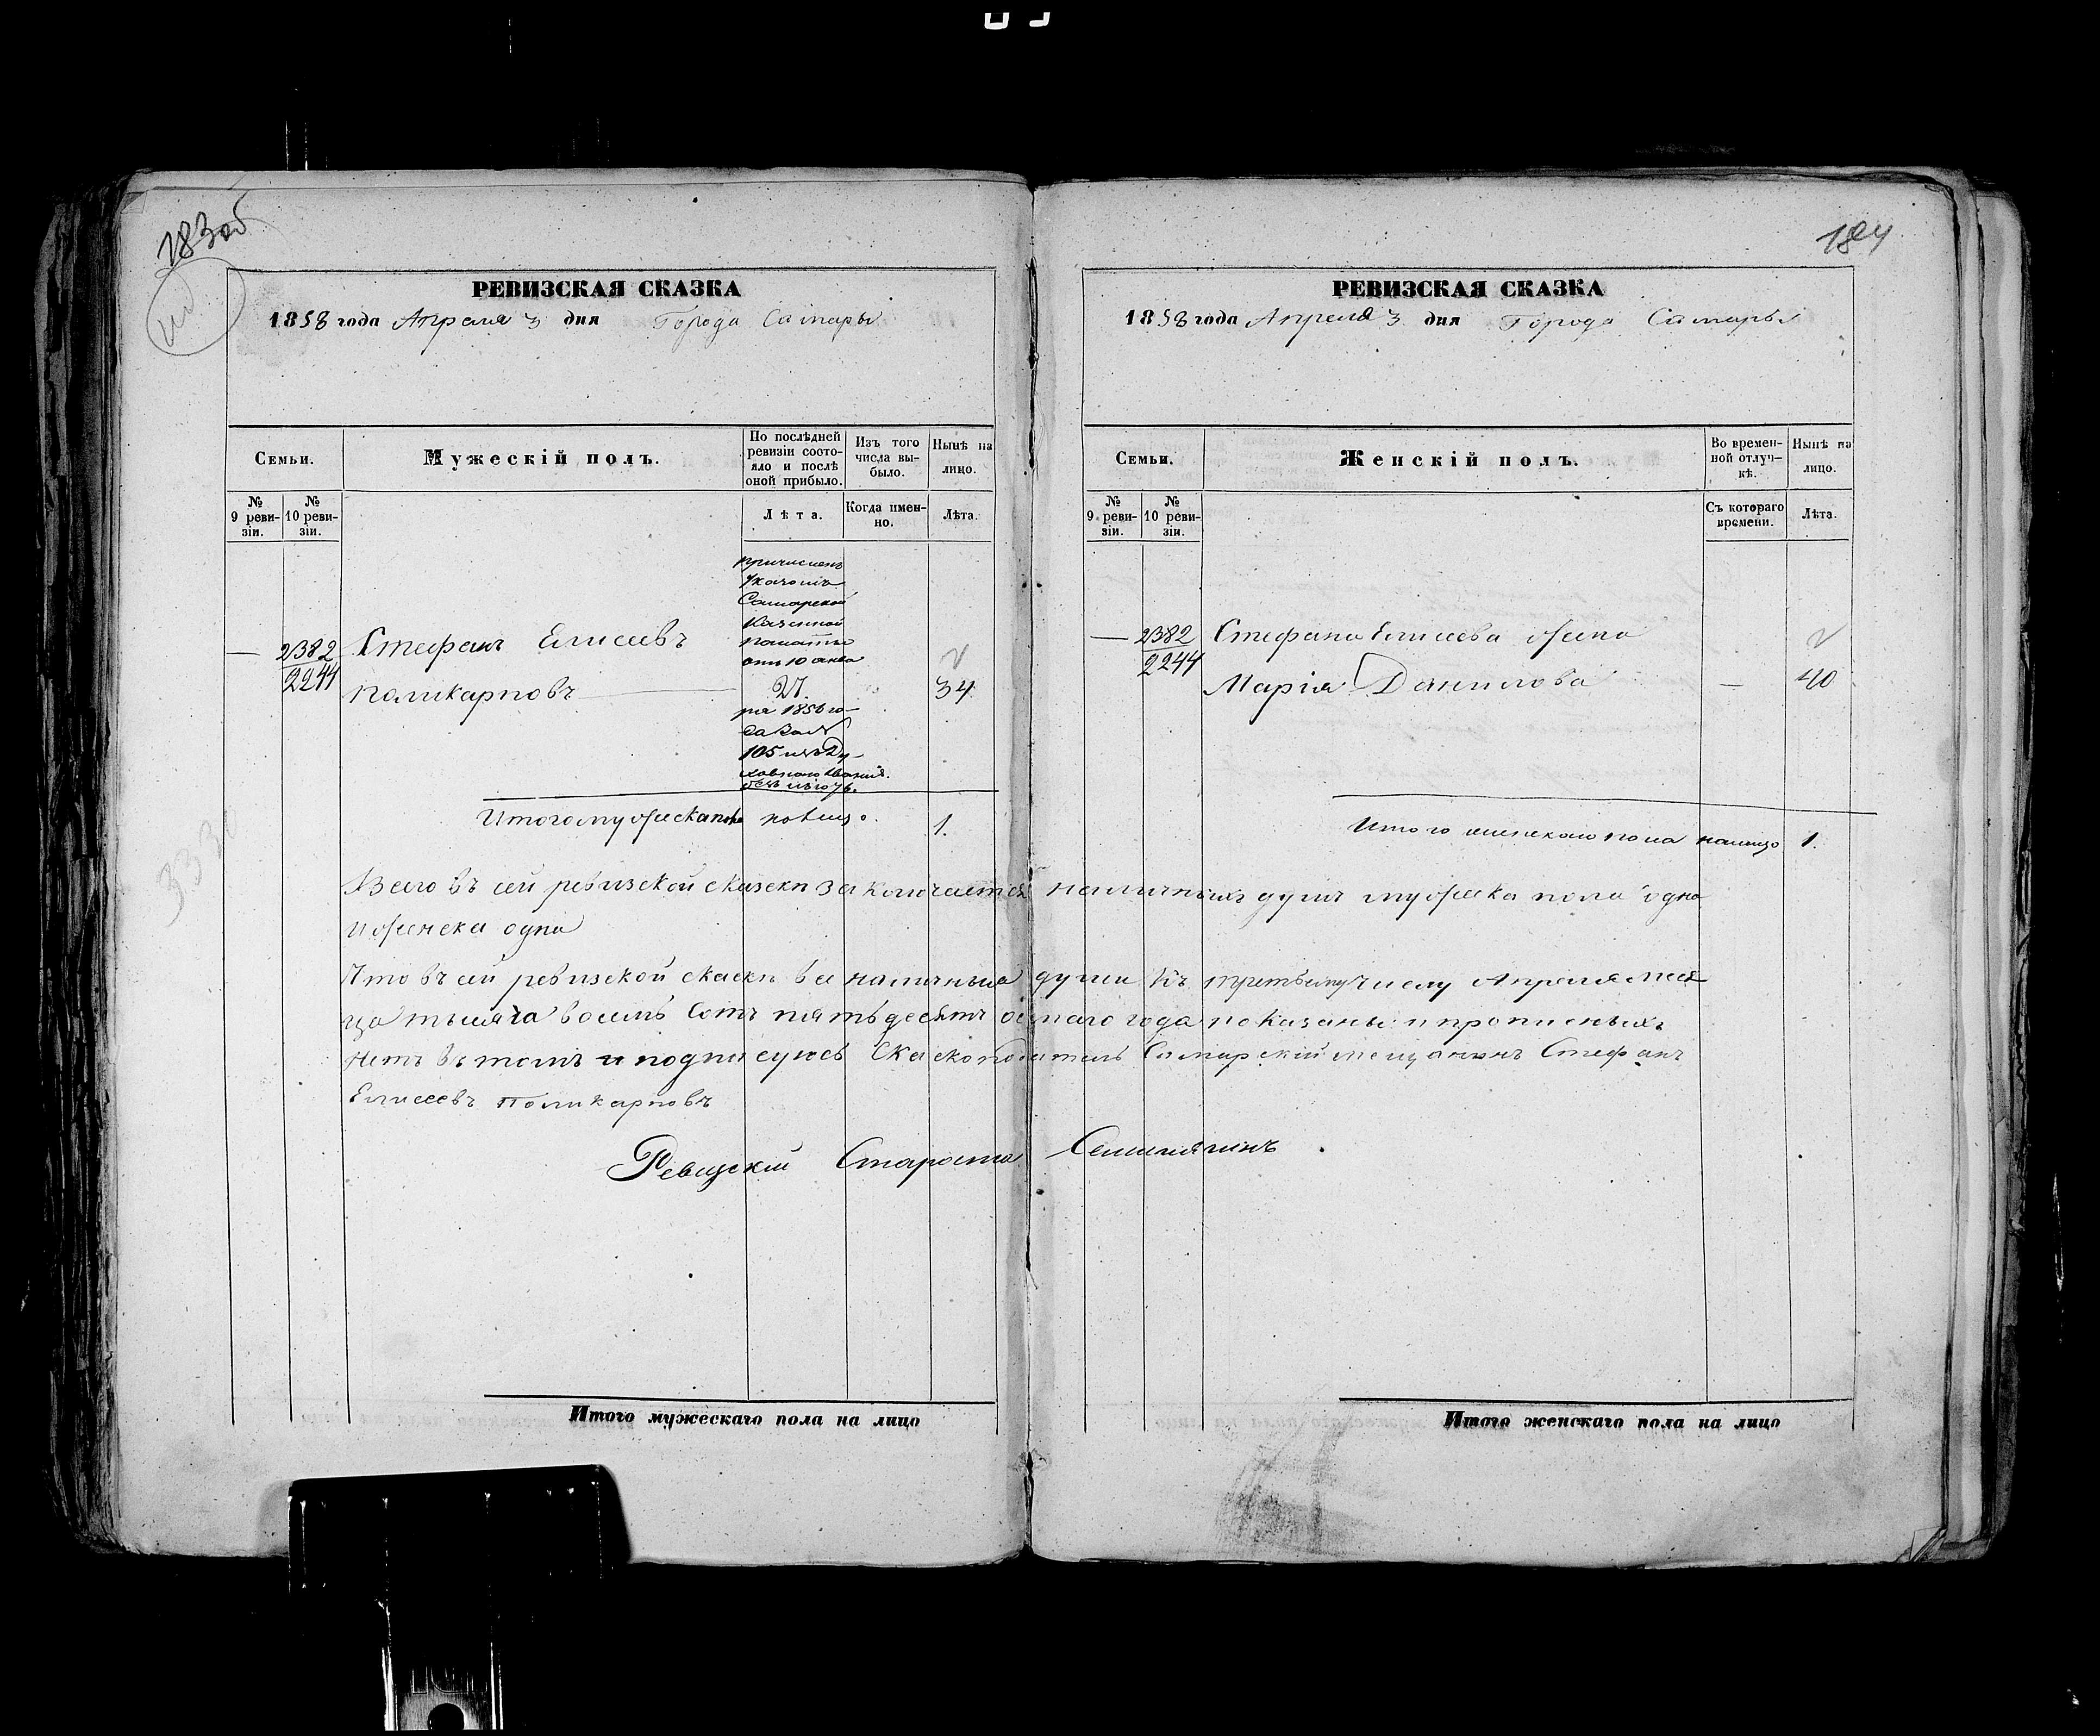 183об
РЕВИЗСКАЯ СКАЗКА
1858 года Апреля 3 дня Города Самары
Семьи.
Мужескій полъ.
По послѣдней ревизіи состояло и послѣ оной прибыло.
Изъ того числа выбыло.
Нынѣ на лицо.
№ 9 ревизіи.
№ 10 ревизіи.
Лѣта.
Когда именно.
Лѣта.
причисленъ
Указомъ
Самарской
Казенной
Палаты
отъ 10 октя
— 2382 Стефанъ Елисеевъ
2244 Поликарповъ 27. 34
ря 1850 го-
да за №
105 изъ Ду-
ховнаго звания.
Итого мужеска пола налицо. 1.
Всего въ сей ревизской сказки заключается наличныхъ душъ мужеска пола одна
и женска одна
Что въ сей ревизской сказки все наличныя души къ третьему числу Апреля меся
ца тысяча восемь сотъ пятьдесятъ осмаго года показаны и прописныхъ
нетъ въ томъ и подписуюсь Сказкоподатель Самарский мещанинъ Стефанъ
Елисеевъ Поликарповъ
Ревизский Староста
Итого мужескаго пола на лицо
184
РЕВИЗСКАЯ СКАЗКА
1858 года Апреля 3 дня Города Самары
Семьи.
Женскій полъ.
Во временной отлучкѣ.
Нынѣ на лицо.
№ 9 ревизіи.
№ 10 ревизіи.
Съ котораго времени.
Лѣта.
— 2382 Стефана Елисеева жена
2244 Марія Данилова — 40
Итого женскаго пола налицо 1.
Итого женскаго пола на лицо